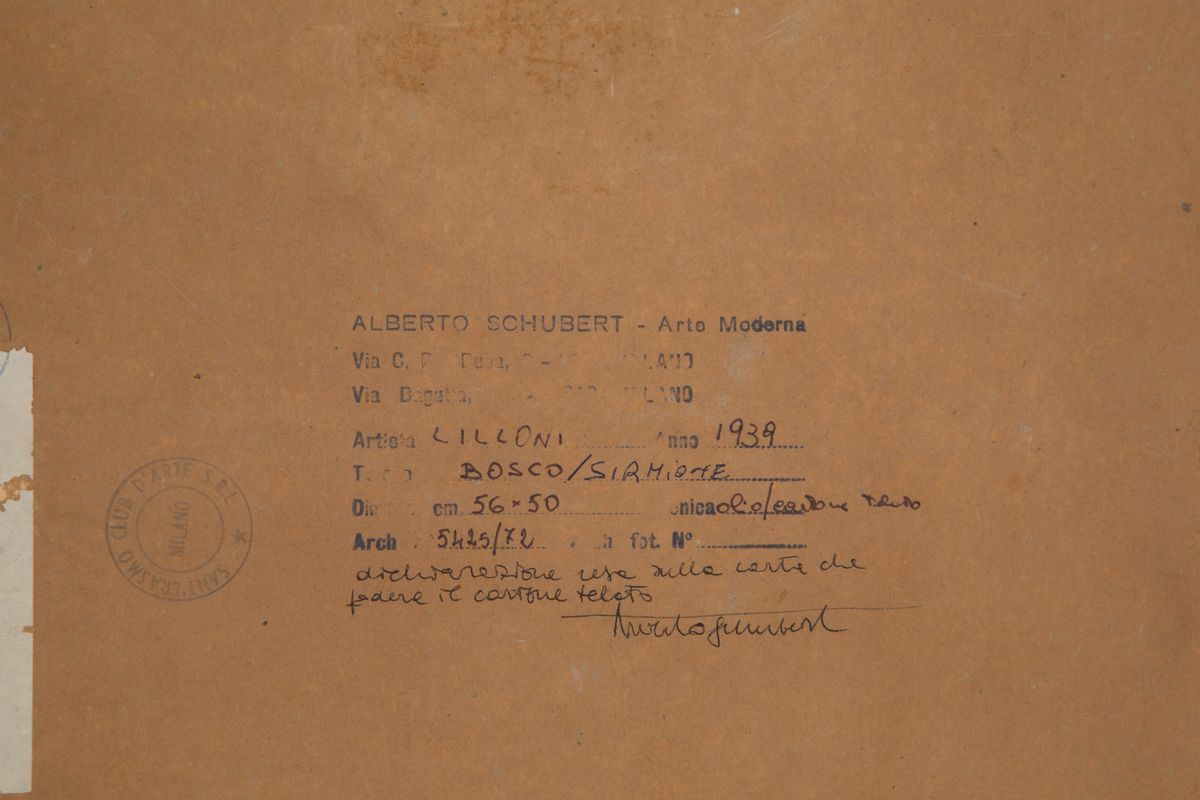 ALBERTO SCHUBERT - Arte Moderna
Via C.
Via Bagutta, MILANO
Artista LILLONI Anno 1939
BOSCO/SIRMIONE
cm. 56 × 50 olio/cartone telato
Arch 5425/72 fot. N°
dichiarazione resa sulla carta che
fodera il cartone telato
SANT'ERASMO CLUB D'ARTE S.R.L. ★
MILANO